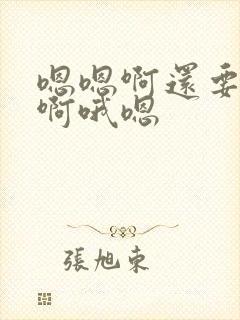 嗯嗯啊還要
啊哦嗯
張旭東